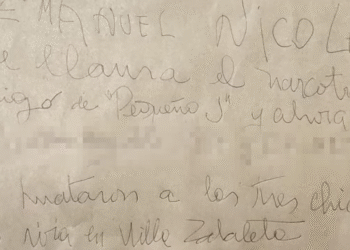 MANUEL NICOL
e llama el narcot
igo de "Pequeño J" y ahora
mataron a las tres chic
vivia en Villa Zabaleta